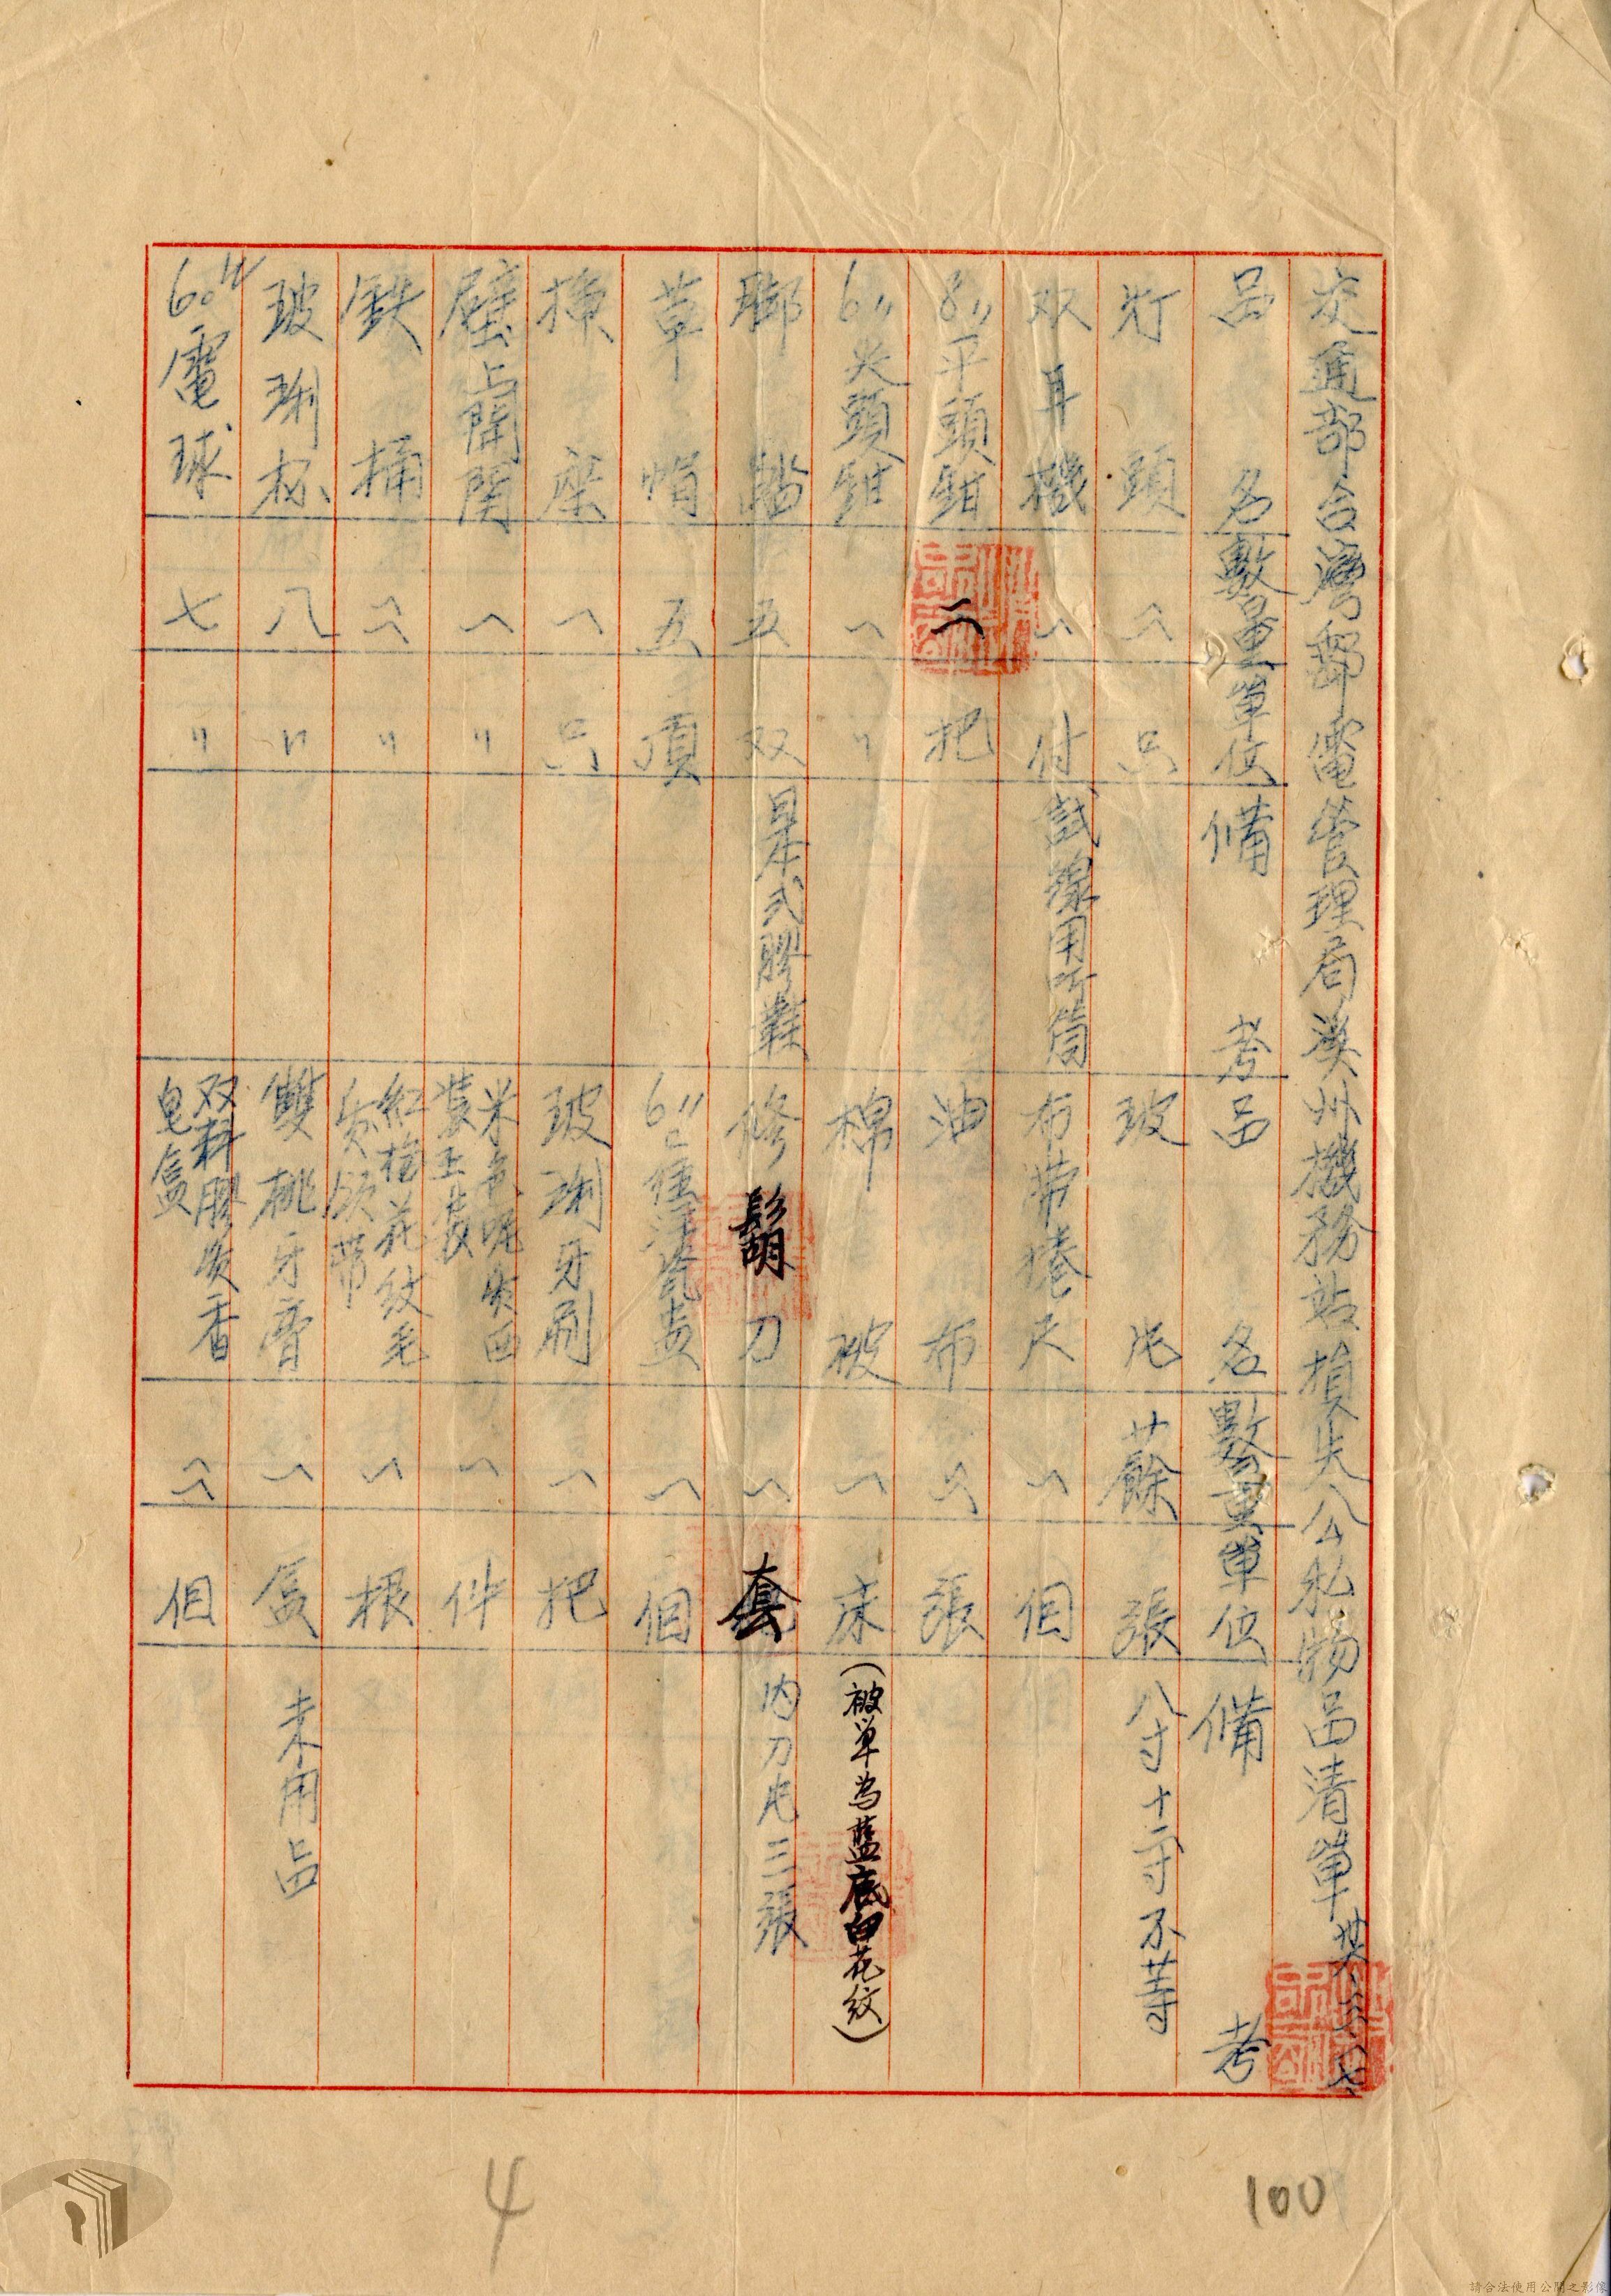 交通部台灣郵電管理局溪州機務站損失公私物品清單 卅六、三、一七
品名 數量 單位 備考 品名 數量 單位 備考
灯頭 一 只 玻片 廿餘 張 八寸十二寸不等
双耳機 一 付 試線用听筒 布带捲尺 一 個
8〃平頭鉗 二 把 油布 一 張
6〃尖頭鉗 一 〃 棉被 一 床 (被単為藍底白花紋)
腳踏 五 双 日本式膠鞋 修鬍刀 一 套 内刀片三張
草帽 五 頂 6〃 洋瓷盖 一 個
插座 一 只 玻琍牙刷 一 把
壁上開関 一 〃 米色呢質西裝上裝 一 件
鉄桶 二 〃 紅格花紋毛質領帶 一 根
玻琍杯 八 〃 雙桃牙膏 一 盒 未用品
60W電球 七 〃 双料膠質香皂盒 二 個
4
100
請合法使用公開之影像